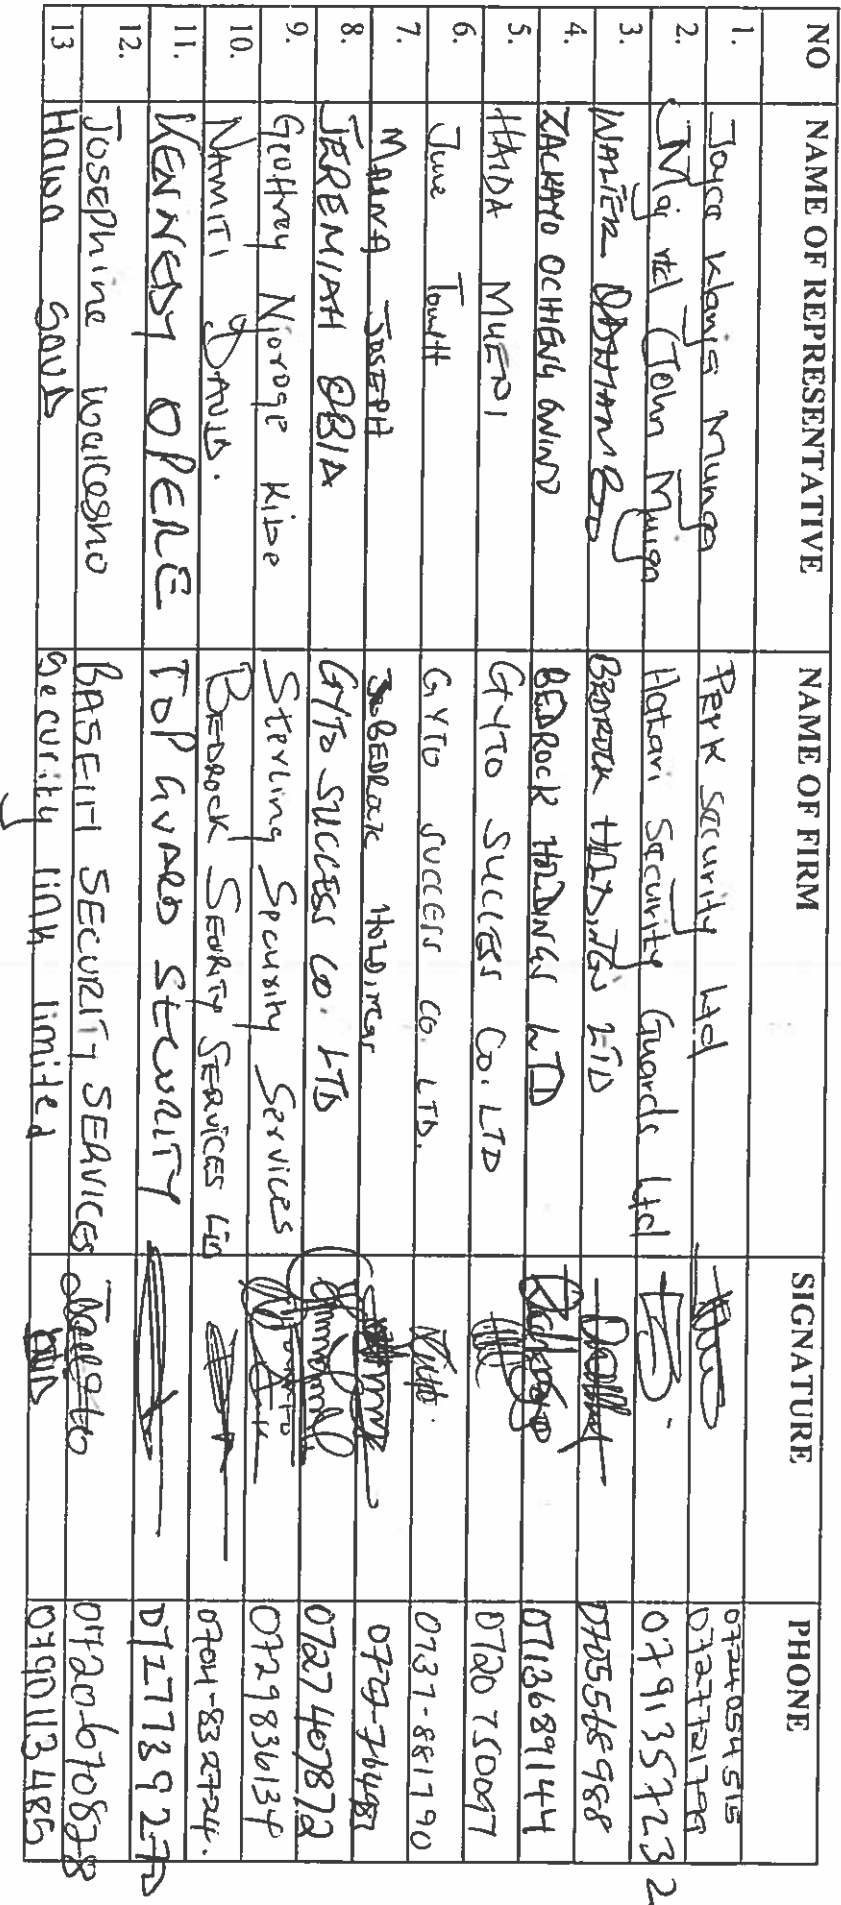 NO NAME OF REPRESENTATIVE NAME OF FIRM SIGNATURE PHONE
1. Joyce Munga Perk Security Ltd 0724054515
0727721798
2. Maj rtd John Muiga Hatari Security Guards Ltd 0791357232
3. WALTER ODHIAMBO BEDROCK HOLDINGS LTD 0705568988
4. ZACHAYO OCHIENG OWINO BEDROCK HOLDINGS LTD 0713689144
5. HAIDA MUEDI GYTO SUCCESS Co. LTD 0720750097
6. June GYTO SUCCESS CO LTD. 0737-881790
7. MAINA JOSEPH BEDROCK HOLDINGS
8. JEREMIAH OBIA GYTO SUCCESS CO. LTD 0727407872
9. Geoffrey Njoroge Kibe Sterling Security Services 0729836134
10. NAMITI DAVID. BEDROCK SECURITY SERVICES LTD 0704-832724.
11. KENNEDY OPERE TOP GUARD SECURITY
12. Josephine Walcesho BASEIH SECURITY SERVICES 0720-670828
13 Hawa SOUD Security link limited 0790113485